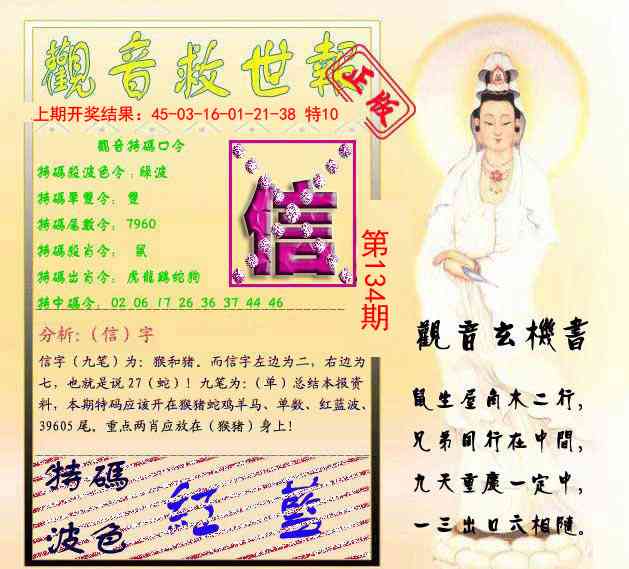 觀音救世報
正版
上期开奖结果：45-03-16-01-21-38 特10
觀音特碼口令
特碼殺波色令：綠波
特碼單雙令： 雙
特碼尾數令： 7960
特碼殺肖令： 鼠
特碼出肖令： 虎龍鷄蛇狗
特中碼令： 02 06 17 26 36 37 44 46
信
第134期
分析：（信）字
信字（九笔）为：猴和猪。而信字左边为二，右边为
七，也就是说 27（蛇）！九笔为：（单）总结本报资
料，本期特码应该开在猴猪蛇鸡羊马、单数、红蓝波、
39605 尾。重点两肖应放在（猴猪）身上！
特碼
波色
紅 藍
觀音玄機書
鼠生屋角木二行，
兄弟同行在中間，
九天重慶一定中，
一三出口六相隨。